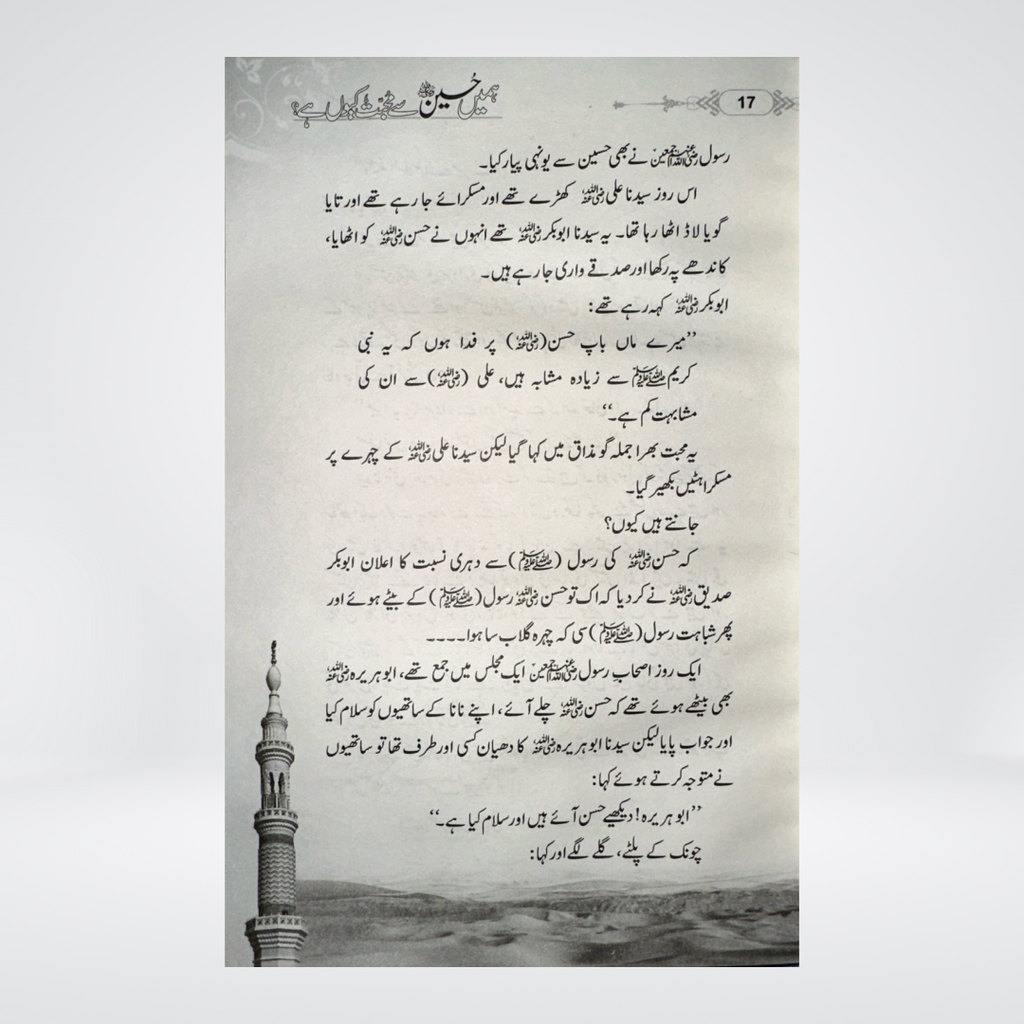 ہمیں حُسین رضی اللہ عنہ سے محبت کیوں ہے؟
17
رسول رضی اللہ عنہم اجمعین نے بھی حسین سے یونہی پیار کیا۔
اس روز سیدنا علی رضی اللہ عنہ کھڑے تھے اور مسکرائے جا رہے تھے اور تایا
گویا لاڈ اٹھا رہا تھا۔ یہ سیدنا ابوبکر رضی اللہ عنہ تھے انہوں نے حسن رضی اللہ عنہ کو اٹھایا،
کاندھے پہ رکھا اور صدقے واری جا رہے ہیں۔
ابوبکر رضی اللہ عنہ کہہ رہے تھے:
’’میرے ماں باپ حسن (رضی اللہ عنہ) پر فدا ہوں کہ یہ نبی
کریم صلی اللہ علیہ وسلم سے زیادہ مشابہ ہیں، علی (رضی اللہ عنہ) سے ان کی
مشابہت کم ہے۔‘‘
یہ محبت بھرا جملہ گو مذاق میں کہا گیا لیکن سیدنا علی رضی اللہ عنہ کے چہرے پر
مسکراہٹیں بکھیر گیا۔
جانتے ہیں کیوں؟
کہ حسن رضی اللہ عنہ کی رسول (صلی اللہ علیہ وسلم) سے دہری نسبت کا اعلان ابوبکر
صدیق رضی اللہ عنہ نے کر دیا کہ اک تو حسن رضی اللہ عنہ رسول (صلی اللہ علیہ وسلم) کے بیٹے ہوئے اور
پھر شباہت رسول (صلی اللہ علیہ وسلم) سی کہ چہرہ گلاب سا ہوا۔۔۔۔
ایک روز اصحاب رسول رضی اللہ عنہم اجمعین ایک مجلس میں جمع تھے، ابو ہریرہ رضی اللہ عنہ
بھی بیٹھے ہوئے تھے کہ حسن رضی اللہ عنہ چلے آئے، اپنے نانا کے ساتھیوں کو سلام کیا
اور جواب پایا لیکن سیدنا ابو ہریرہ رضی اللہ عنہ کا دھیان کسی اور طرف تھا تو ساتھیوں
نے متوجہ کرتے ہوئے کہا:
’’ابو ہریرہ! دیکھیے حسن آئے ہیں اور سلام کیا ہے۔‘‘
چونک کے پلٹے، گلے لگے اور کہا: